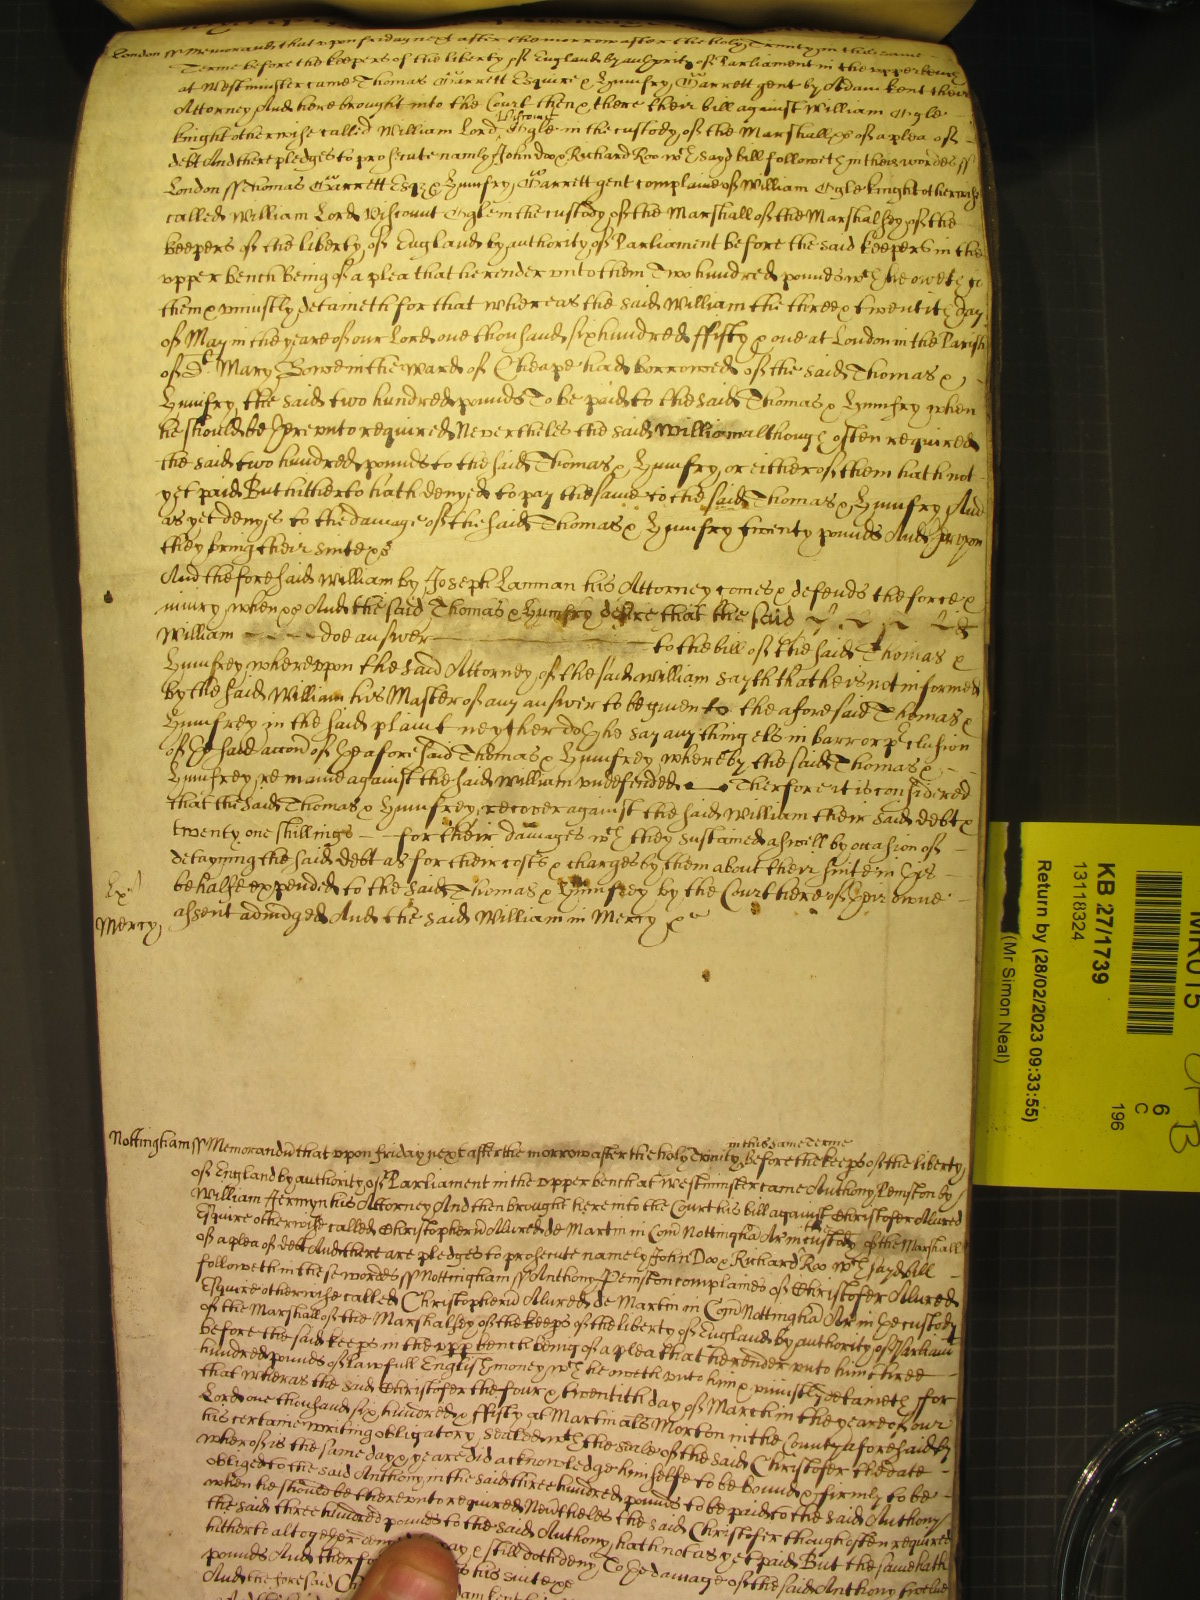 London ss Memorand that upon friday next after the morrow after the holy Trinity in this same
Terme before the keepers of the liberty of England by authority of Parliament in the upper bench
at Westminster came Thomas Garrett Esquire & Humfry Garrett gent by Adam Kent their
Attorney And here brought into the Court then & there their bill against William Ogle
knight otherwise called William Lord Viscount Ogle in the custody of the Marshall &c of a plea of
debt And there pledges to prosecute namely John Doo & Richard Roo wch sayd bill followeth in theis wordes ss
London ss Thomas Garrett Esq & Humfry Garrett gent complaine of William Ogle knight otherwise
called William Lord Viscount Ogle in the custody of the Marshall of the Marshalsey of the
keepers of the liberty of England by authority of Parliament before the said keepers in the
upper bench Being of a plea that he render unto them Two hundred pounds wch he oweth to
them & uniustly detaineth for that whereas the said William the three & twentith day
of May in the yeare of our Lord one thousand six hundred ffifty & one at London in the Parish
of St Mary Bowe in the ward of Cheape had borrowed of the said Thomas &
Humfry the said two hundred pounds To be paid to the said Thomas & Humfry when
he should be thereunto required Nevertheles the said William although often required
the said two hundred pounds to the said Thomas & Humfry or either of them hath not
yet paid But hitherto hath denyed to pay the same to the said Thomas & Humfry And
as yet denyes to the damage of the said Thomas & Humfry twenty pounds And thereupon
they bring their suite &c
And the foresaid William by Joseph Lanman his Attorney comes & defends the force &
iniury when &c And the said Thomas & Humfry desire that the said
William doe answer to the bill of the said Thomas &
Humfrey whereupon the said Attorney of the said William sayth that he is not informed
by the said William his Master of any answer to be given to the aforesaid Thomas &
Humfrey in the said plaint neyther doth he say any thing els in barr or preclusion
of the said accon of the aforesaid Thomas & Humfrey whereby the said Thomas &
Humfrey remaine against the said William undefended Therfore it is considered
that the said Thomas & Humfrey recover against the said William their said debt &
twenty one shillings for their damages wch they sustained aswell by occasion of
detayning the said debt as for their costs & charges by them about their suite in this
behalfe expended to the said Thomas & Humfrey by the Court here of their owne
assent adiudged And the said William in Mercy &c
Mercy
Nottingham ss Memorand that upon friday next after the morrow after the holy Trinity in this same Terme before the keeps of the liberty
of England by authority of Parliament in the upper bench at Westminster came Anthony Peniston by
William Jermyn his Attorney And then brought here into the Court his bill against Christofer Alured
Esquire otherwise called Christopherū Alured de Martin in Com Nottingha Ar in the custody of the Marshall
of a plea of debt And there are pledges to prosecute namely John Doo & Richard Roo wch sayd bill
followeth in these wordes ss Nottingham ss Anthony Peniston complaines of Christofer Alured
Esquire otherwise called Christopherū Alured de Martin in Com Nottingha Ar in the custody
of the Marshall of the Marshalsey of the keeps of the liberty of England by authority of Parliamt
before the said keeps in the upp bench being of a plea that he render unto him three
hundred pounds of lawfull English money wch he oweth unto him & uniustly detaineth ffor
that wheras the said Christofer the four & twentith day of March in the yeare of our
Lord one thousand six hundred & ffifty at Martin als Morton in the County aforesaid by
his certaine writing obligatory sealed with the seale of the said Christofer the date
wherof is the same day & yeare did acknowledge himselfe to be bound & firmly to be
obliged to the said Anthony in the said three hundred pounds to be paid to the said Anthony
when he should be thereunto required Nevtheles the said Christofer though often required
the said three hundred pounds to the said Anthony hath not as yet paid But the same hath
hitherto altogether pay & still doth deny To the damage of the said Anthony twelve
pounds And therfo his suite &c
And the foresaid Ch
KB 27/1739
13118324
Return by (28/02/2023 09:33:55)
(Mr Simon Neal)
MR015
6
C
196
B